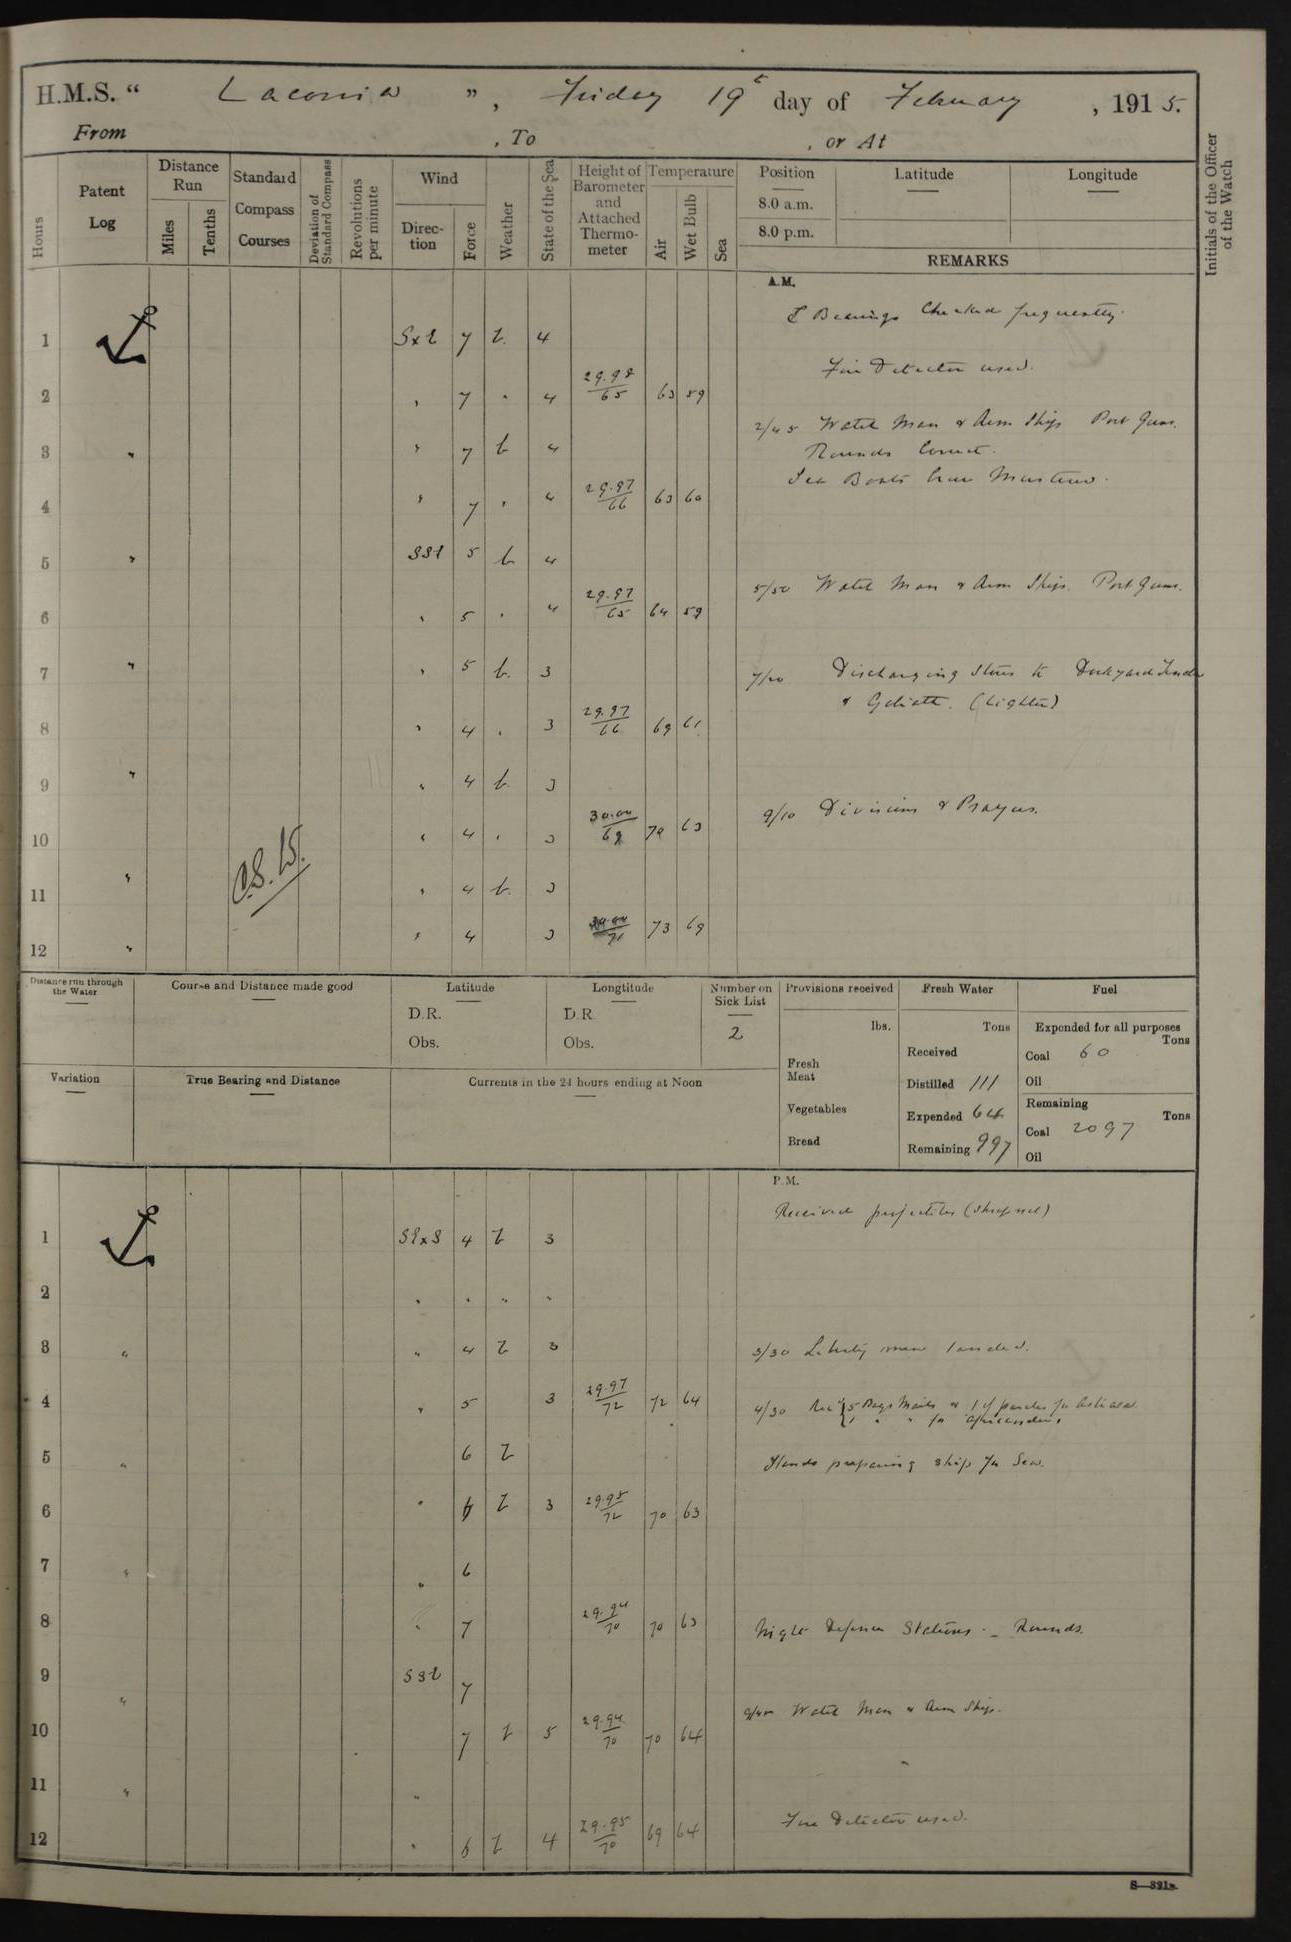 H.M.S. “ Laconia ”, Friday 19t day of February, 1915.
From , To , or At
Hours
Patent Log
Distance Run
Miles
Tenths
Standard Compass Courses
Deviation of Standard Compass
Revolutions per minute
Wind
Direction
Force
Weather
State of the Sea
Height of Barometer and Attached Thermometer
Temperature
Air
Wet Bulb
Sea
Position
8.0 a.m.
8.0 p.m.
Latitude
Longitude
REMARKS
Initials of the Officer of the Watch
A.M.
Bearings Checked frequently.
1 SxE 7 b. 4
Fire Detector used.
2 " 7 " 4 29.98/65 63 59
2/45 Watch Man & Arm Ships Port Guns.
3 " " 7 b 4
Rounds Correct.
Sea Boats Crew Mustered.
4 " 7 " 4 29.97/66 63 60
5 " SSE 5 b 4
5/50 Watch Man & Arm Ships. Port Guns.
6 " 5 " 4 29.97/65 64 59
7 " " 5 b. 3
7/20 Discharging Stores to Dockyard Tender
& Goliath. (Lighter)
8 " 4 " 3 29.97/66 69 61
9 " " 4 b. 3
9/10 Divisions & Prayers.
10 " 4 " 3 30.00/69 70 63
C.S. 15.
11 " " 4 b. 3
12 " " 4 3 73 69
Distance run through the Water
Course and Distance made good
Latitude
D.R.
Obs.
Longtitude
D.R
Obs.
Number on Sick List
2
Provisions received
lbs.
Fresh Meat
Vegetables
Bread
Fresh Water
Tons
Received
Distilled 111
Expended 64
Remaining 997
Fuel
Expended for all purposes
Tons
Coal 60
Oil
Remaining
Tons
Coal 2097
Oil
Variation
True Bearing and Distance
Currents in the 24 hours ending at Noon
P.M.
Received projectiles (Shrapnel)
1 SExS 4 b 3
2 " " " "
3 " " 4 b 3
3/30 Liberty men landed.
4 " 5 3 29.97/72 72 64
4/30 Rec'd 5 Bags Mails & 1 of parcels for
1 " " for
5 " 6 b
Hands preparing ship for Sea.
6 " 6 b 3 29.95/72 70 63
7 " " 6
8 " 7 29.94/70 70 63
Night Defence Stations. – Rounds.
9 " SSE 7
Watch Man & Arm Ship.
10 7 b 5 29.94/70 70 64
11 " "
12 " 6 b 4 29.95/70 69 64
Fire Detector used.
S—321a.